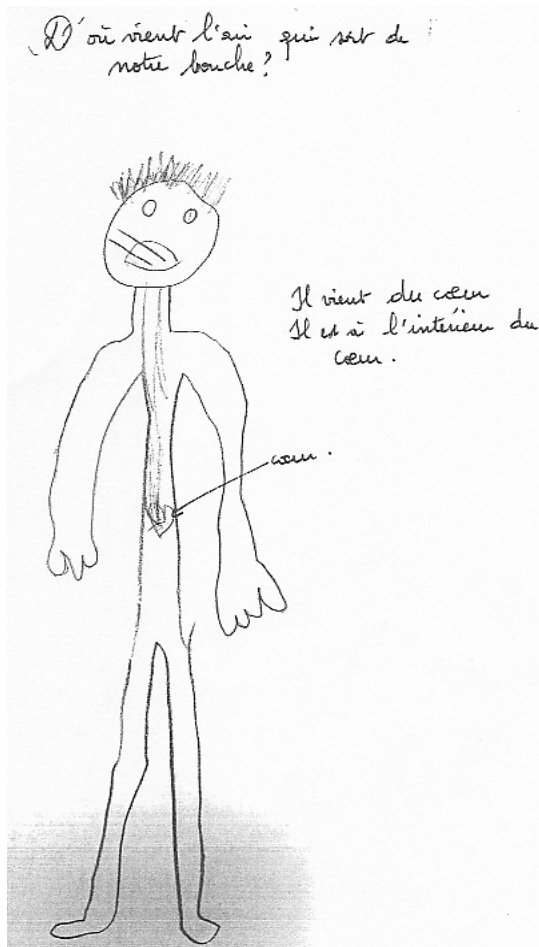 D'où vient l'air qui sort de
notre bouche?
Il vient du cœur
Il est à l'intérieur du
cœur.
cœur.